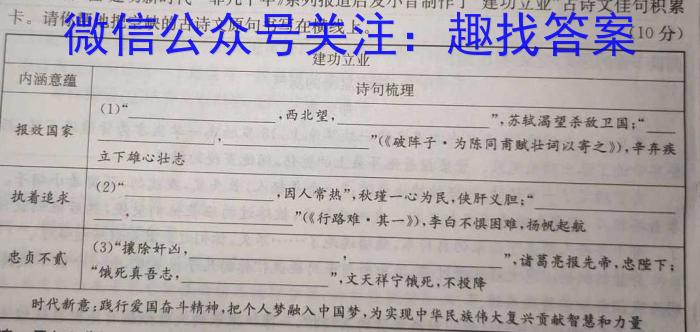 系列报道后发小音制作了“建功立业”古诗文佳句积累
卡。请你
古诗文原句书写在横线上。(10分)
微信公众号关注：趣找答案
建功立业
内涵意蕴
诗句梳理
报效国家
(1)“____,西北望,____”,苏轼渴望杀敌卫国;“____
____,____”(《破阵子·为陈同甫赋壮词以寄之》),辛弃疾
立下雄心壮志
执着追求
(2)“____,因人常热”,秋瑾一心为民,侠肝义胆;“____
____,____”(《行路难·其一》),李白不惧困难,扬帆起航
忠贞不贰
(3)“攘除奸凶,____,____”,诸葛亮报先帝,忠陛下;
“饿死真吾志,____”,文天祥宁饿死,不投降
时代新意:践行爱国奋斗精神,把个人梦融入中国梦,为实现中华民族伟大复兴贡献智慧和力量